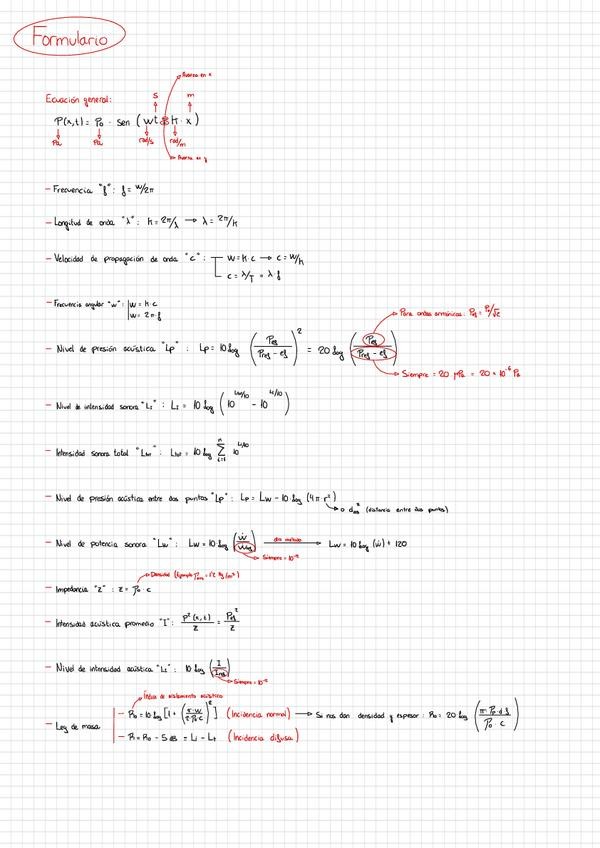 Formulario
Avanza en x
Ecuación general: s m
P(x,t) = P₀ · sen (wt ± k · x)
Pa Pa rad/s rad/m
- Frecuencia "f": f = w/2π
- Longitud de onda "λ": k = 2π/λ → λ = 2π/k
- Velocidad de propagación de onda "c": w = k·c → c = w/k
c = λ/T = λ·f
- Frecuencia angular "w": w = k·c
w = 2π·f
Para ondas armónicas: Pef = P₀/√2
- Nivel de presión acústica "Lp": Lp = 10 log (Pef / Pref-ef)² = 20 log (Pef / Pref-ef)
Siempre = 20 μPa = 20 × 10⁻⁶ Pa
- Nivel de intensidad sonora "L₁": L₁ = 10 log (10 - 10)
- Intensidad sonora total "Ltot": Ltot = 10 log Σ 10^(Li/10)
- Nivel de presión acústica entre dos puntos "Lp": Lp = Lw - 10 log (4π·r²)
→ o (distancia entre dos puntos)
- Nivel de potencia sonora "Lw": Lw = 10 log (ẇ/ẇref) otro método → Lw = 10 log (ẇ) + 120
Siempre = 10⁻¹²
Densidad (Ejemplo = 1'2 kg/m³)
- Impedancia "z": z = ρ₀ · c
- Intensidad acústica promedio "I": P²(x,t)/z = Pef²/z
- Nivel de intensidad acústica "L₁": 10 log (I/Iref)
Siempre = 10⁻¹²
Índice de aislamiento acústico
- Ley de masa - R₀ = 10 log [1 + ()²] (Incidencia normal) → Si nos dan densidad y espesor: R₀ = 20 log (π·ρ₀·d·f / ρ₀·c)
- R = R₀ - 5 dB = Li - Lt (Incidencia difusa)